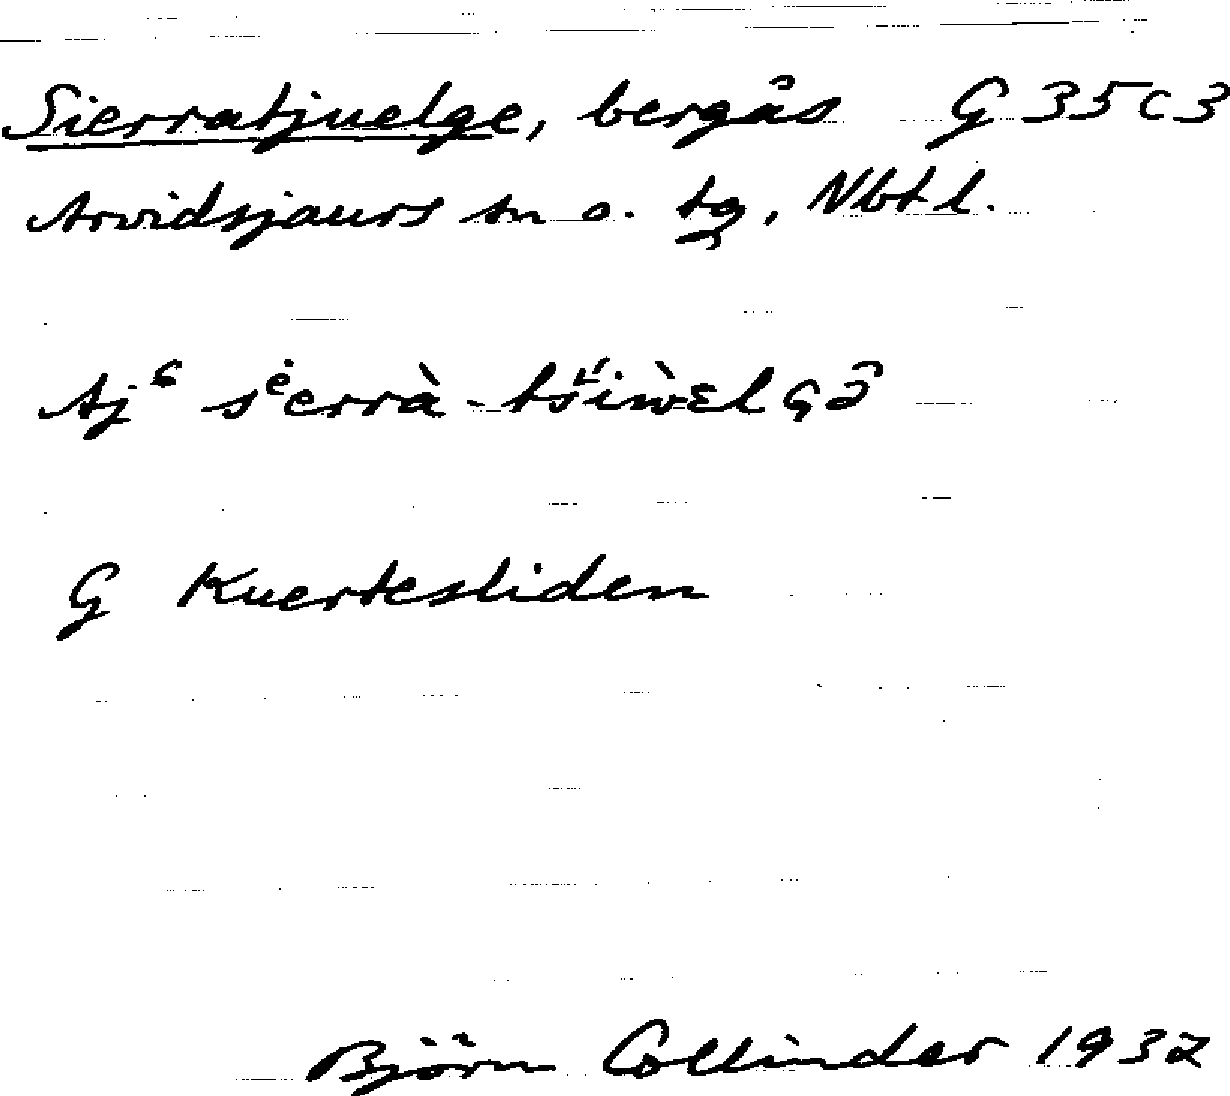 Sierratjuelge, bergås G 35 c 3
Arvidsjaurs sn o. tg, Nbtl.
Aj⁶
G Kuertesliden
Björn Collinder 1932